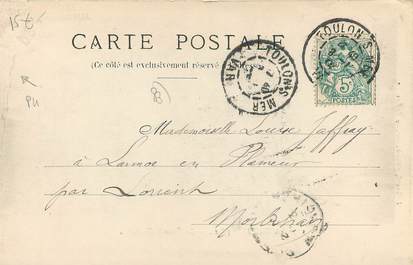 15€
CARTE POSTALE
(Ce côté est exclusivement réservé
PH
TOULON S MER
VAR
TOULON S MER
5c
POSTES
Mademoiselle Louise Jaffray
à Larmor en Plœmeur
par Lorient
Morbihan